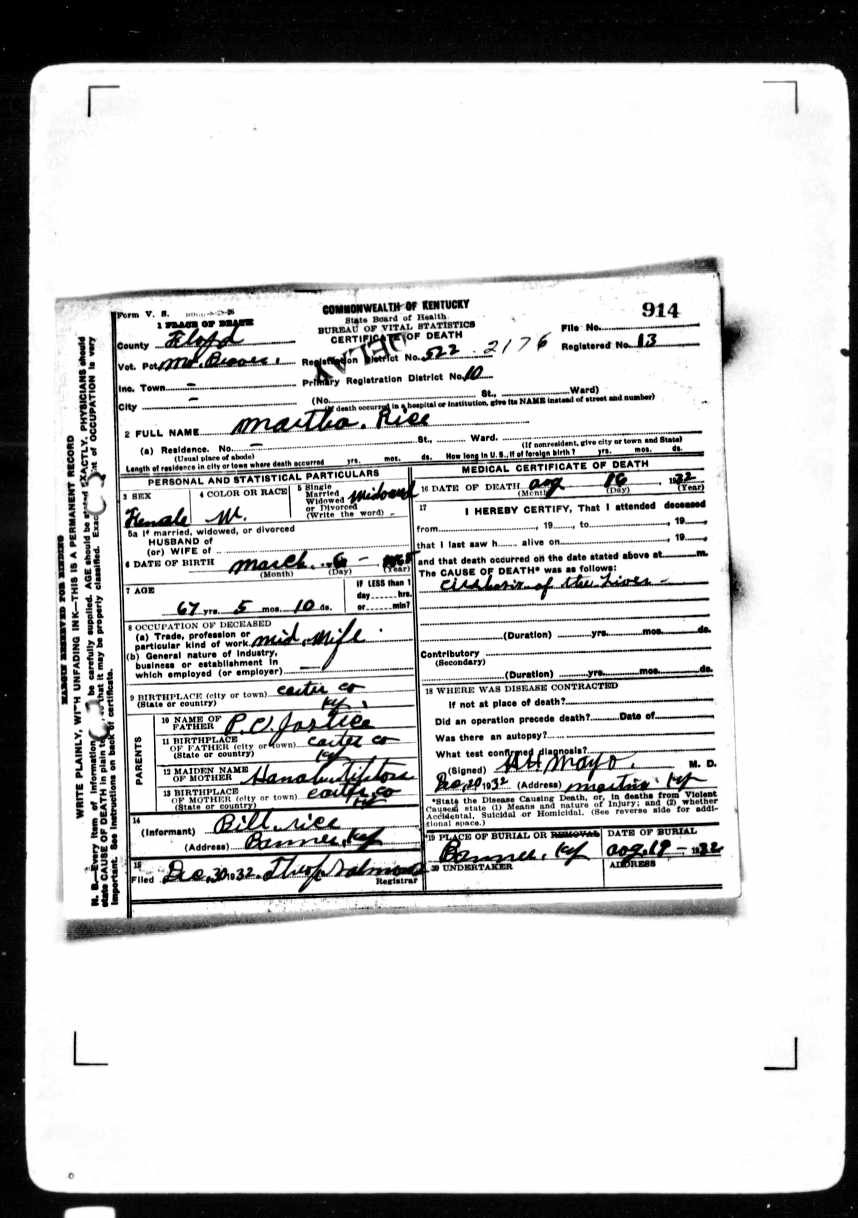 914
COMMONWEALTH OF KENTUCKY
State Board of Health
BUREAU OF VITAL STATISTICS
CERTIFICATE OF DEATH
Form V. S.
1 PLACE OF DEATH
County Floyd
Vot. Pct.
Inc. Town –
City –
DELAY
File No.
Registered No. 13
Registration District No. 522 2176
Primary Registration District No. 10
(No. St., Ward)
(If death occurred in a hospital or institution, give its NAME instead of street and number)
2 FULL NAME Martha. Rice
(a) Residence. No. – St., Ward.
(Usual place of abode) (If nonresident, give city or town and State)
Length of residence in city or town where death occurred yrs. mos. ds. How long in U. S., if of foreign birth? yrs. mos. ds.
PERSONAL AND STATISTICAL PARTICULARS
3 SEX
Female
4 COLOR OR RACE
W.
5 Single
Married
Widowed
or Divorced
(Write the word)
Widowed
5a If married, widowed, or divorced
HUSBAND of
(or) WIFE of
6 DATE OF BIRTH March 6 –
(Month) (Day) (Year)
7 AGE
67 yrs. 5 mos. 10 ds.
IF LESS than 1
day hrs.
or min?
8 OCCUPATION OF DECEASED
(a) Trade, profession or
particular kind of work Mid Wife
(b) General nature of industry,
business or establishment in
which employed (or employer)
9 BIRTHPLACE (city or town) Carter Co
(State or country) Ky.
PARENTS
10 NAME OF
FATHER P. C. Justice
11 BIRTHPLACE
OF FATHER (city or town) Carter Co
(State or country) Ky
12 MAIDEN NAME
OF MOTHER
13 BIRTHPLACE
OF MOTHER (city or town) Carter Co
(State or country) Ky
14
(Informant) Bill. Rice
(Address) Banner, Ky
15
Filed Dec. 30 1932.
Registrar
MEDICAL CERTIFICATE OF DEATH
16 DATE OF DEATH Aug 16, 1932
(Month) (Day) (Year)
17
I HEREBY CERTIFY, That I attended deceased
from , 19 , to , 19
that I last saw h alive on , 19
and that death occurred on the date stated above at m.
The CAUSE OF DEATH* was as follows:
Cirrhosis of the Liver –
(Duration) yrs. mos. ds.
Contributory
(Secondary)
(Duration) yrs. mos. ds.
18 WHERE WAS DISEASE CONTRACTED
If not at place of death?
Did an operation precede death? Date of
Was there an autopsy?
What test confirmed diagnosis?
(Signed) Mayo. M. D.
1932 (Address) Martin Ky
*State the Disease Causing Death, or, in deaths from Violent
Causes, state (1) Means and nature of Injury; and (2) whether
Accidental, Suicidal or Homicidal. (See reverse side for addi-
tional space.)
19 PLACE OF BURIAL OR REMOVAL
Banner, Ky
DATE OF BURIAL
Aug. 19 – 1932
20 UNDERTAKER
ADDRESS
MARGIN RESERVED FOR BINDING
WRITE PLAINLY, WITH UNFADING INK—THIS IS A PERMANENT RECORD